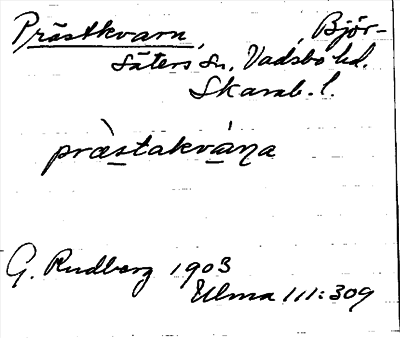 Prästkvarn, , Björ-
säters sn, Vadsbo hd.
Skarab. l.
præ̀stakváṇa
G. Rudberg 1903
Ulma 111:309